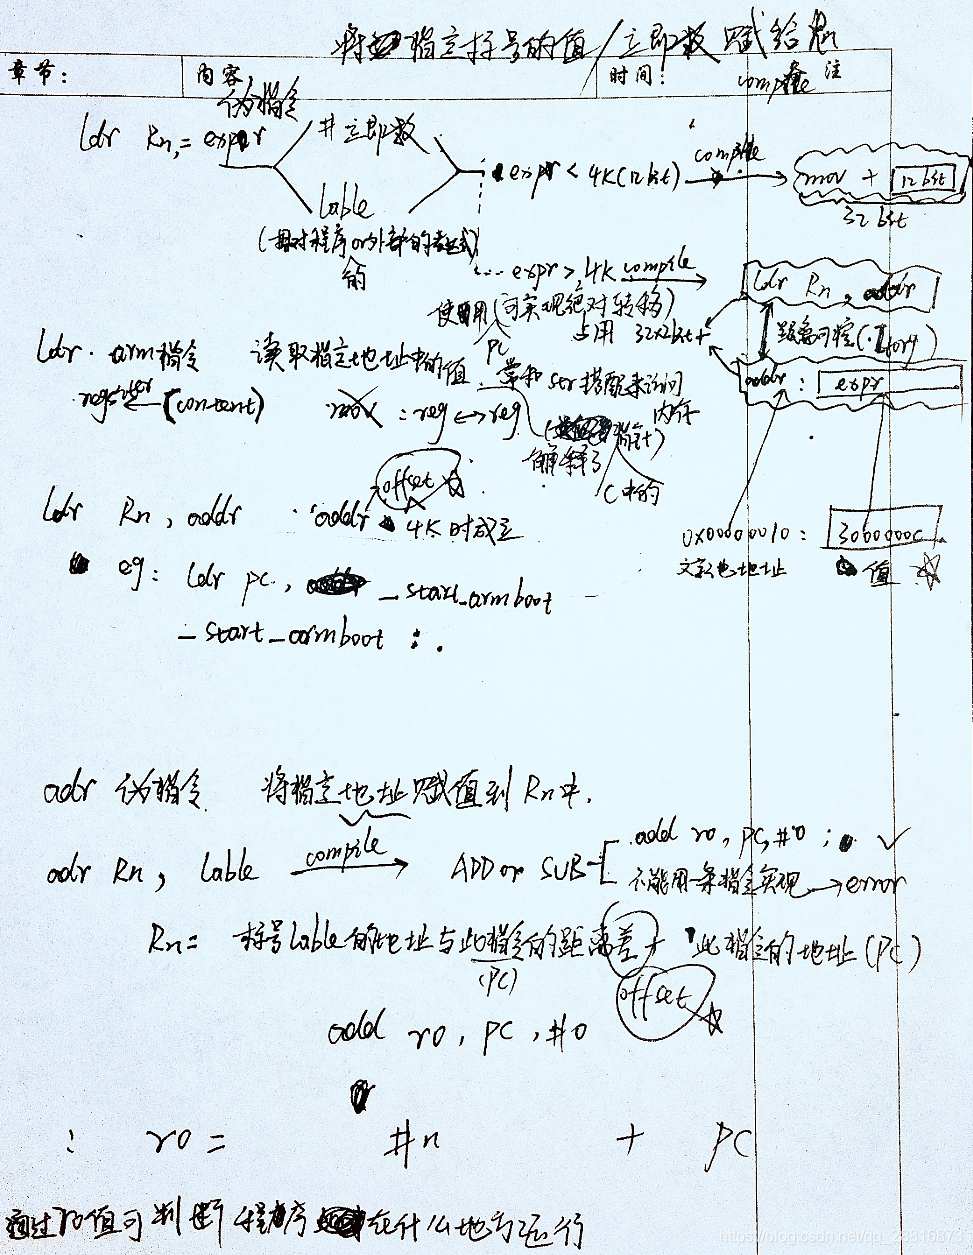 将指定标号的值/立即数 赋给Rn
章节:
内容
时间:
compile 备 注
伪指令
ldr Rn,= expr
#立即数
lable
(相对程序or外部的表达式)
的
expr < 4K(12bit)
compile
mov + 12bit
32bit
... expr > 4K compile
ldr Rn, addr
使用(可实现绝对转移)
PC
占用 32x2bit
距离可控(
addr: expr
ldr. arm指令 读取指定地址中的值. 常和str搭配来访问
内存
register ← (content)
mov : reg ↔ reg
指针)
解释了
C中的
offset
ldr Rn, addr addr 4K时成立
0x00000010: 3060000c
文字池地址
值
eg: ldr pc, _start_armboot
_start_armboot :.
adr 伪指令 将指定地址赋值到Rn中.
adr Rn, lable compile → ADD or SUB
add r0, PC, #0 ; ✓
不能用一条指令实现 → error
Rn = 标号lable的地址与此指令的距离差 + 此指令的地址(PC)
(PC)
offset
add r0, PC, #0
: r0 = #n + PC
通过r0值可判断程序在什么地方运行
https://blog.csdn.net/qq_28816873